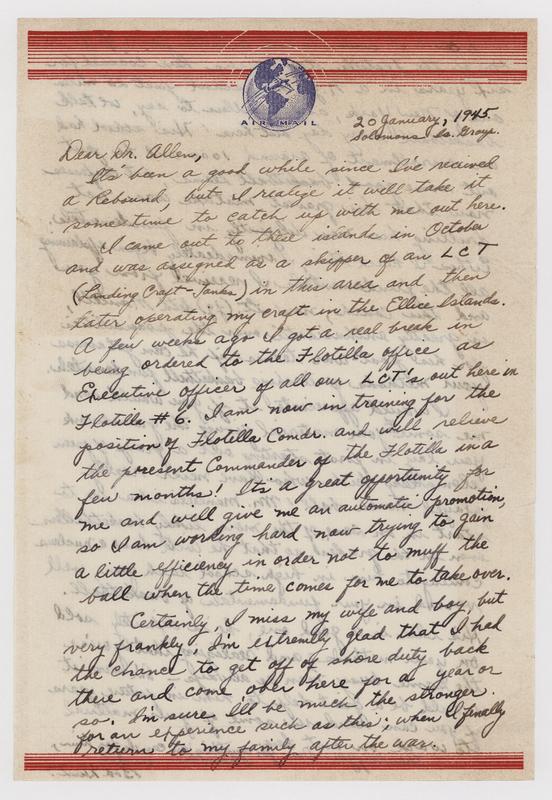 AIR MAIL
20 January, 1945.
Solomons Is. Group.
Dear Dr. Allen,
Its been a good while since I've received
a Rebound, but I realize it will take it
some time to catch up with me out here.
I came out to these islands in October
and was assigned as a skipper of an LCT
(Landing Craft-Tanks) in this area and then
later operating my craft in the Ellice Islands.
A few weeks ago I got a real break in
being ordered to the Flotilla office as
Executive officer of all our LCT's out here in
Flotilla #6. I am now in training for the
position of Flotilla Comdr. and will relieve
the present Commander of the Flotilla in a
few months! It's a great opportunity for
me and will give me an automatic promotion,
so I am working hard now trying to gain
a little efficiency in order not to muff the
ball when the time comes for me to take over.
Certainly, I miss my wife and boy, but
very frankly, I'm extremely glad that I had
the chance to get off of shore duty back
there and come over here for a year or
so. I'm sure I'll be much the stronger
for an experience such as this; when I finally
return to my family after the war.